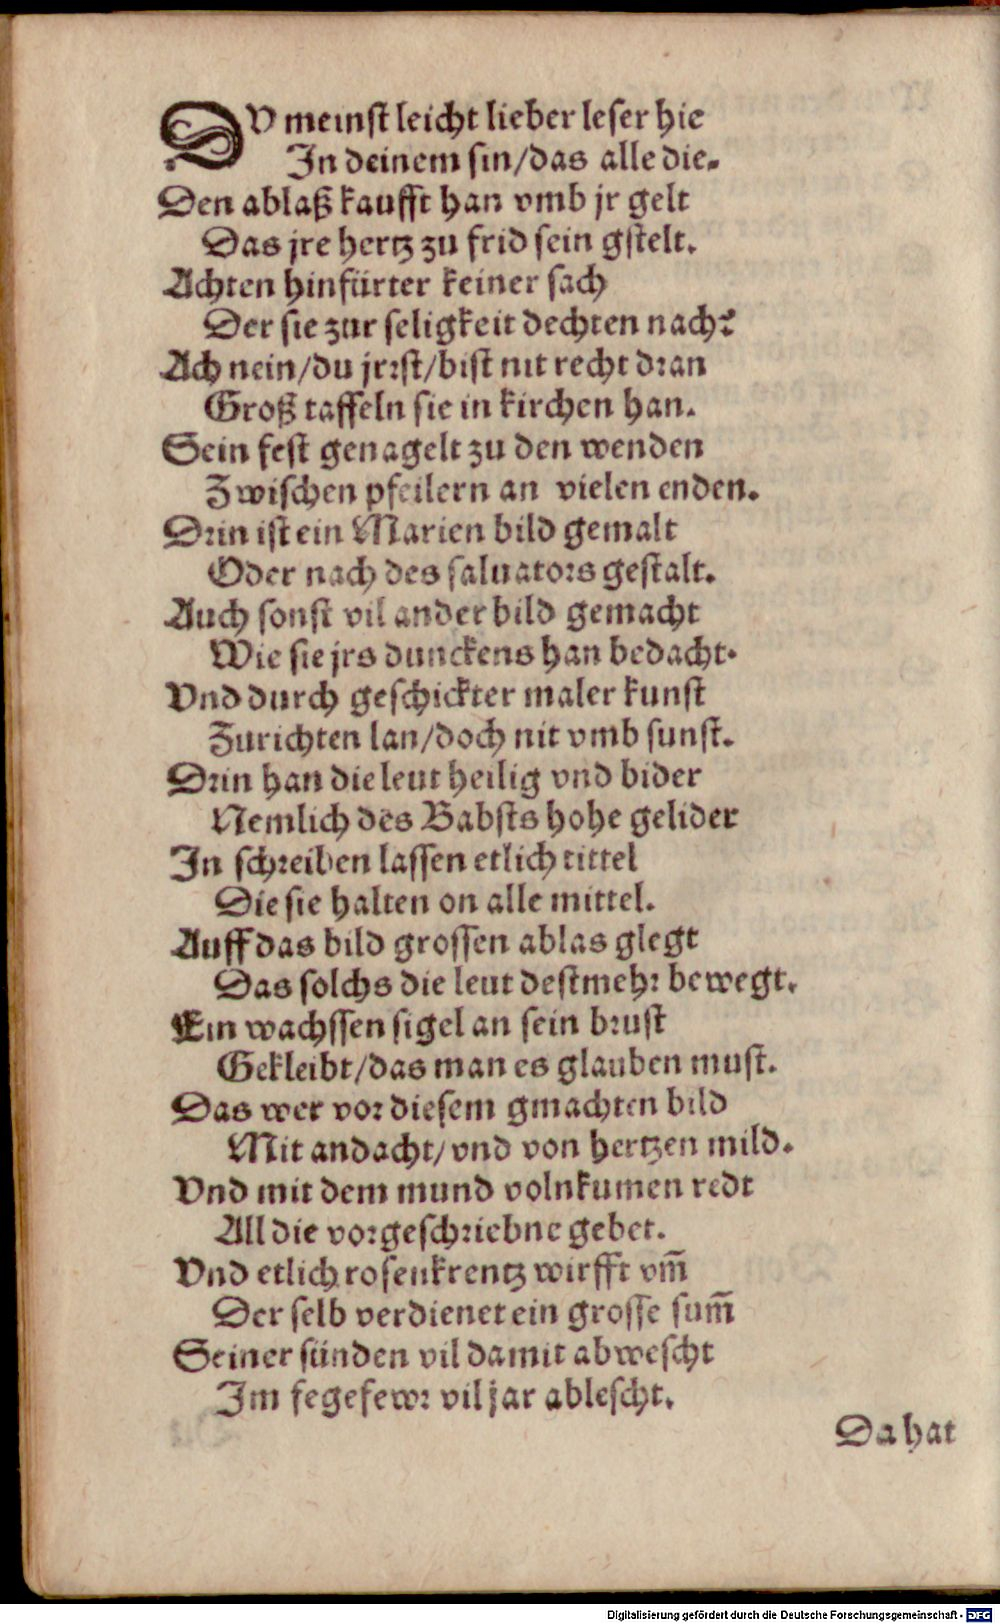 DV meinst leicht lieber leser hie
In deinem sin/das alle die.
Den ablaß kaufft han vmb jr gelt
Das jre hertz zu frid sein gstelt.
Achten hinfürter keiner sach
Der sie zur seligkeit dechten nach?
Ach nein/du jrrst/bist nit recht dran
Groß taffeln sie in kirchen han.
Sein fest genagelt zu den wenden
Zwischen pfeilern an vielen enden.
Drin ist ein Marien bild gemalt
Oder nach des saluators gestalt.
Auch sonst vil ander bild gemacht
Wie sie jrs dunckens han bedacht.
Vnd durch geschickter maler kunst
Zurichten lan/doch nit vmb sunst.
Drin han die leut heilig vnd bider
Nemlich des Babsts hohe gelider
In schreiben lassen etlich tittel
Die sie halten on alle mittel.
Auff das bild grossen ablas glegt
Das solchs die leut destmehr bewegt.
Ein wachssen sigel an sein brust
Gekleibt/das man es glauben must.
Das wer vor diesem gmachten bild
Mit andacht/vnd von hertzen mild.
Vnd mit dem mund volnkumen redt
All die vorgeschriebne gebet.
Vnd etlich rosenkrentz wirfft vm̄
Der selb verdienet ein grosse sum̄
Seiner sünden vil damit abwescht
Im fegefewr vil jar ablescht.
Da hat
Digitalisierung gefördert durch die Deutsche Forschungsgemeinschaft - DFG